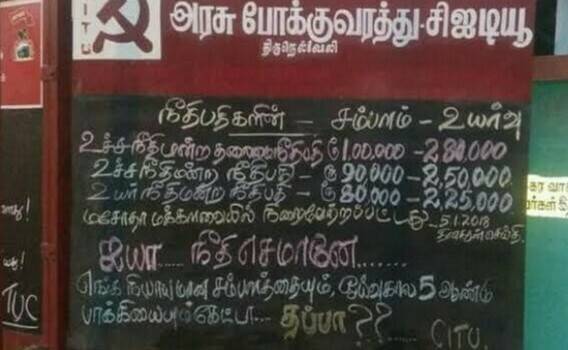 CITU
அரசு போக்குவரத்து-சிஐடியூ
திருநெல்வேலி
நீதிபதிகளின் - சம்பளம் - உயர்வு
உச்சநீதிமன்ற தலைமைநீதிபதி ரூ 1,00,000 - 2,80,000
உச்சநீதிமன்ற நீதிபதி - ரூ 90,000 - 2,50,000
உயர்நீதிமன்ற நீதிபதி - ரூ 80,000 - 2,25,000
மசோதா மக்களவையில் நிறைவேற்றப்பட்டது 5.1.2018
செய்தி.
ஐயா..... நீதிசெமானே.....
எங்க நியாயமான சம்பளத்தையும், ஓய்வுகால 5 ஆண்டு
பாக்கியையும் கேட்டா.... தப்பா??.....
CITU.
TUC